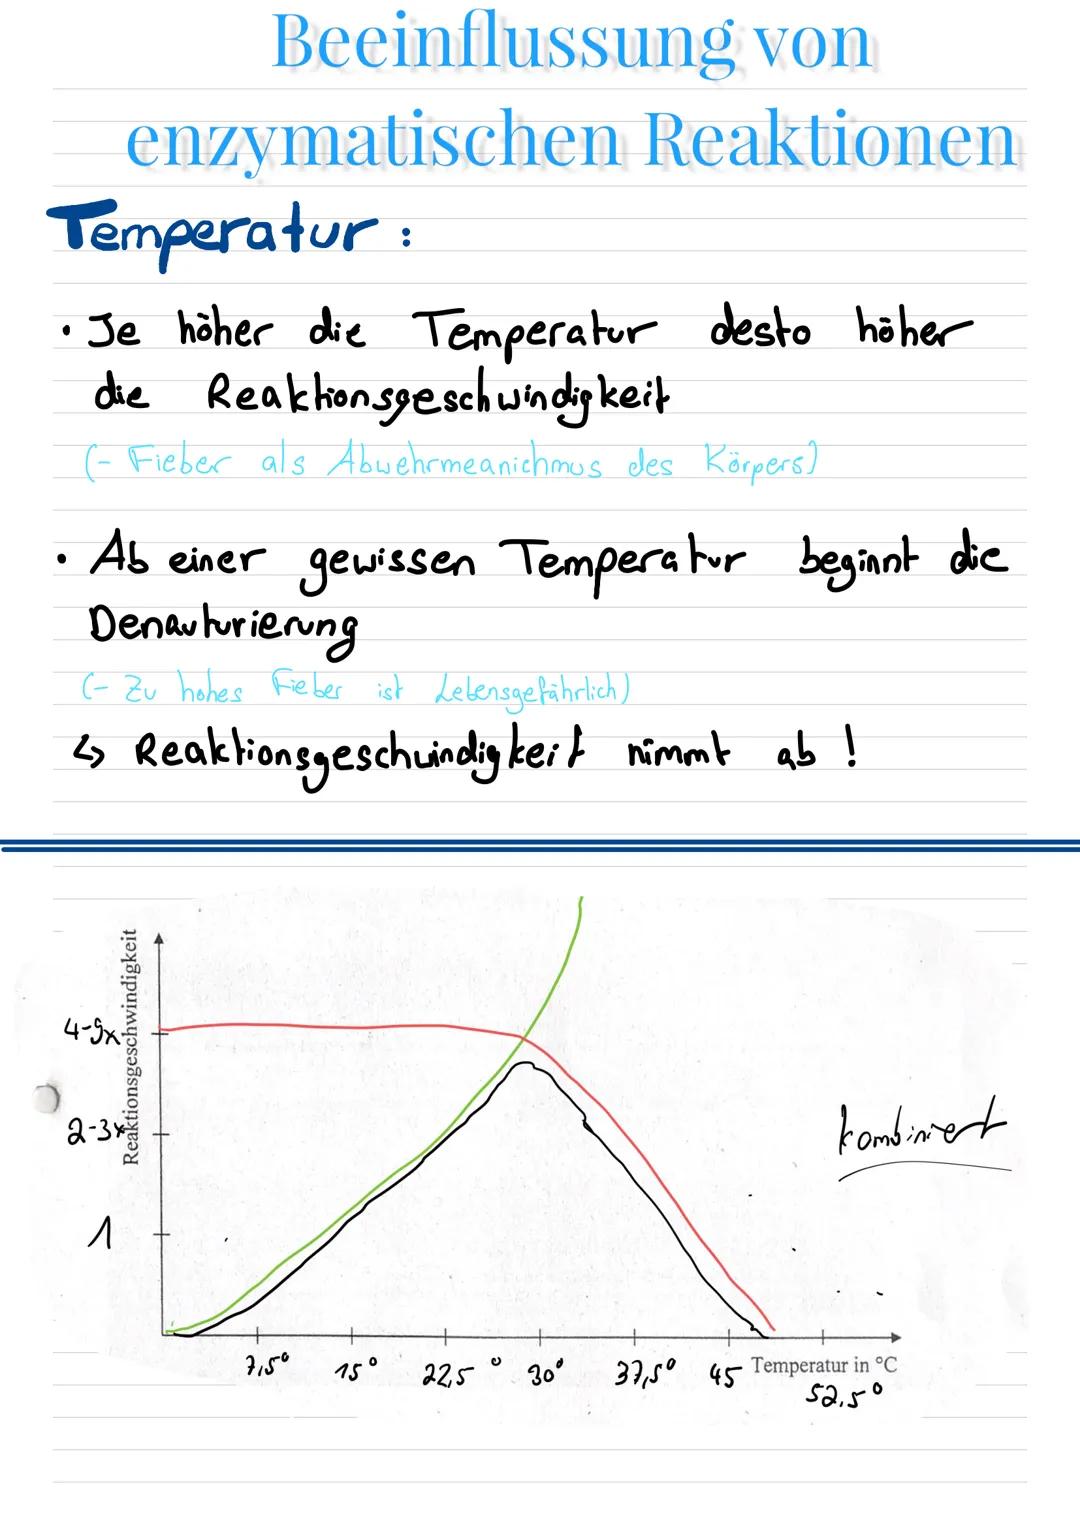 Beeinflussung von
enzymatischen Reaktionen
Temperatur :
• Je höher die Temperatur desto höher
die Reaktionsgeschwindigkeit
(- Fieber als Abwehrmeanichmus des Körpers)
• Ab einer gewissen Temperatur beginnt die
Denauturierung
(- Zu hohes Fieber ist Lebensgefährlich)
↳ Reaktionsgeschwindigkeit nimmt ab !
Reaktionsgeschwindigkeit
4-9x
2-3x
1
kombiniert
7,5° 15° 22,5° 30° 37,5° 45 Temperatur in °C
52,5°